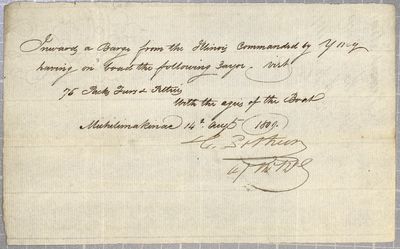 Inwards a Barge from the Illinois Commanded by
having on board the following
76 Packs Furs & Peltries
With the ages of the Boat
Michilimakinac 14th augt 1809.